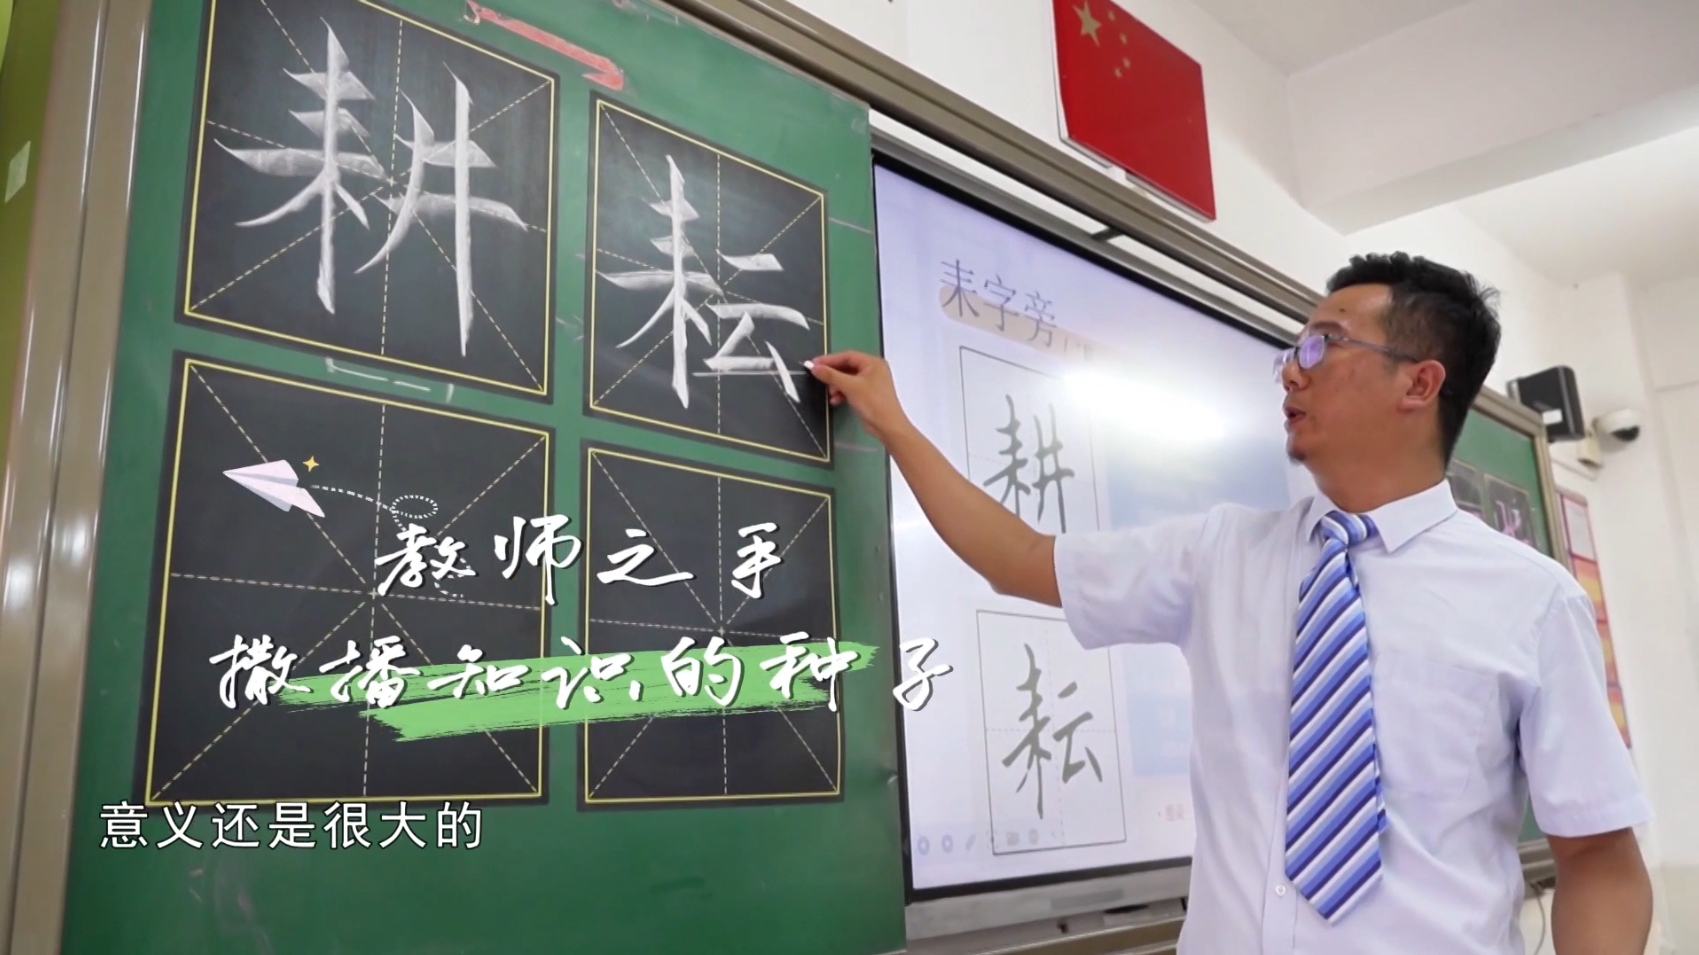 耕
耘
耒字旁
耕
耘
教师之手
撒播知识的种子
意义还是很大的